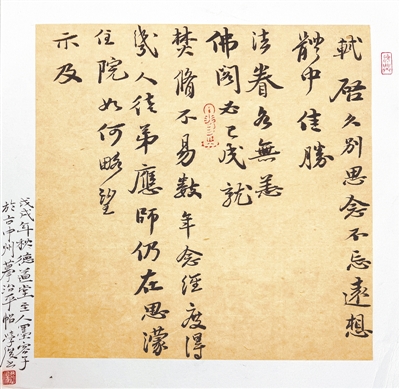 軾啓久別思念不忘遠想
體中佳勝
法眷各無恙
佛閣必已成就
焚脩不易數年念經度得
幾人徒弟應師仍在思濛
住院如何略望
示及
戊戌年秋德益堂主人墨容子
於古中州摹治平帖